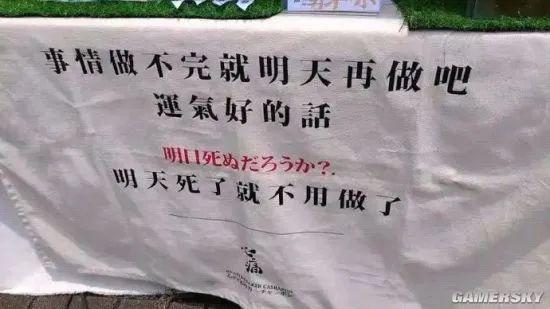 事情做不完就明天再做吧
運氣好的話
明日死ぬだろうか?.
明天死了就不用做了
心痛
GAMERSKY